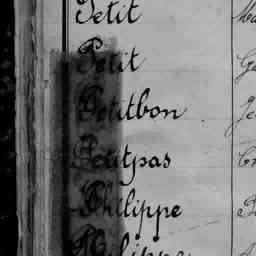 Petit
Petit
Petitbon
Petitpas
Philippe
Philippe